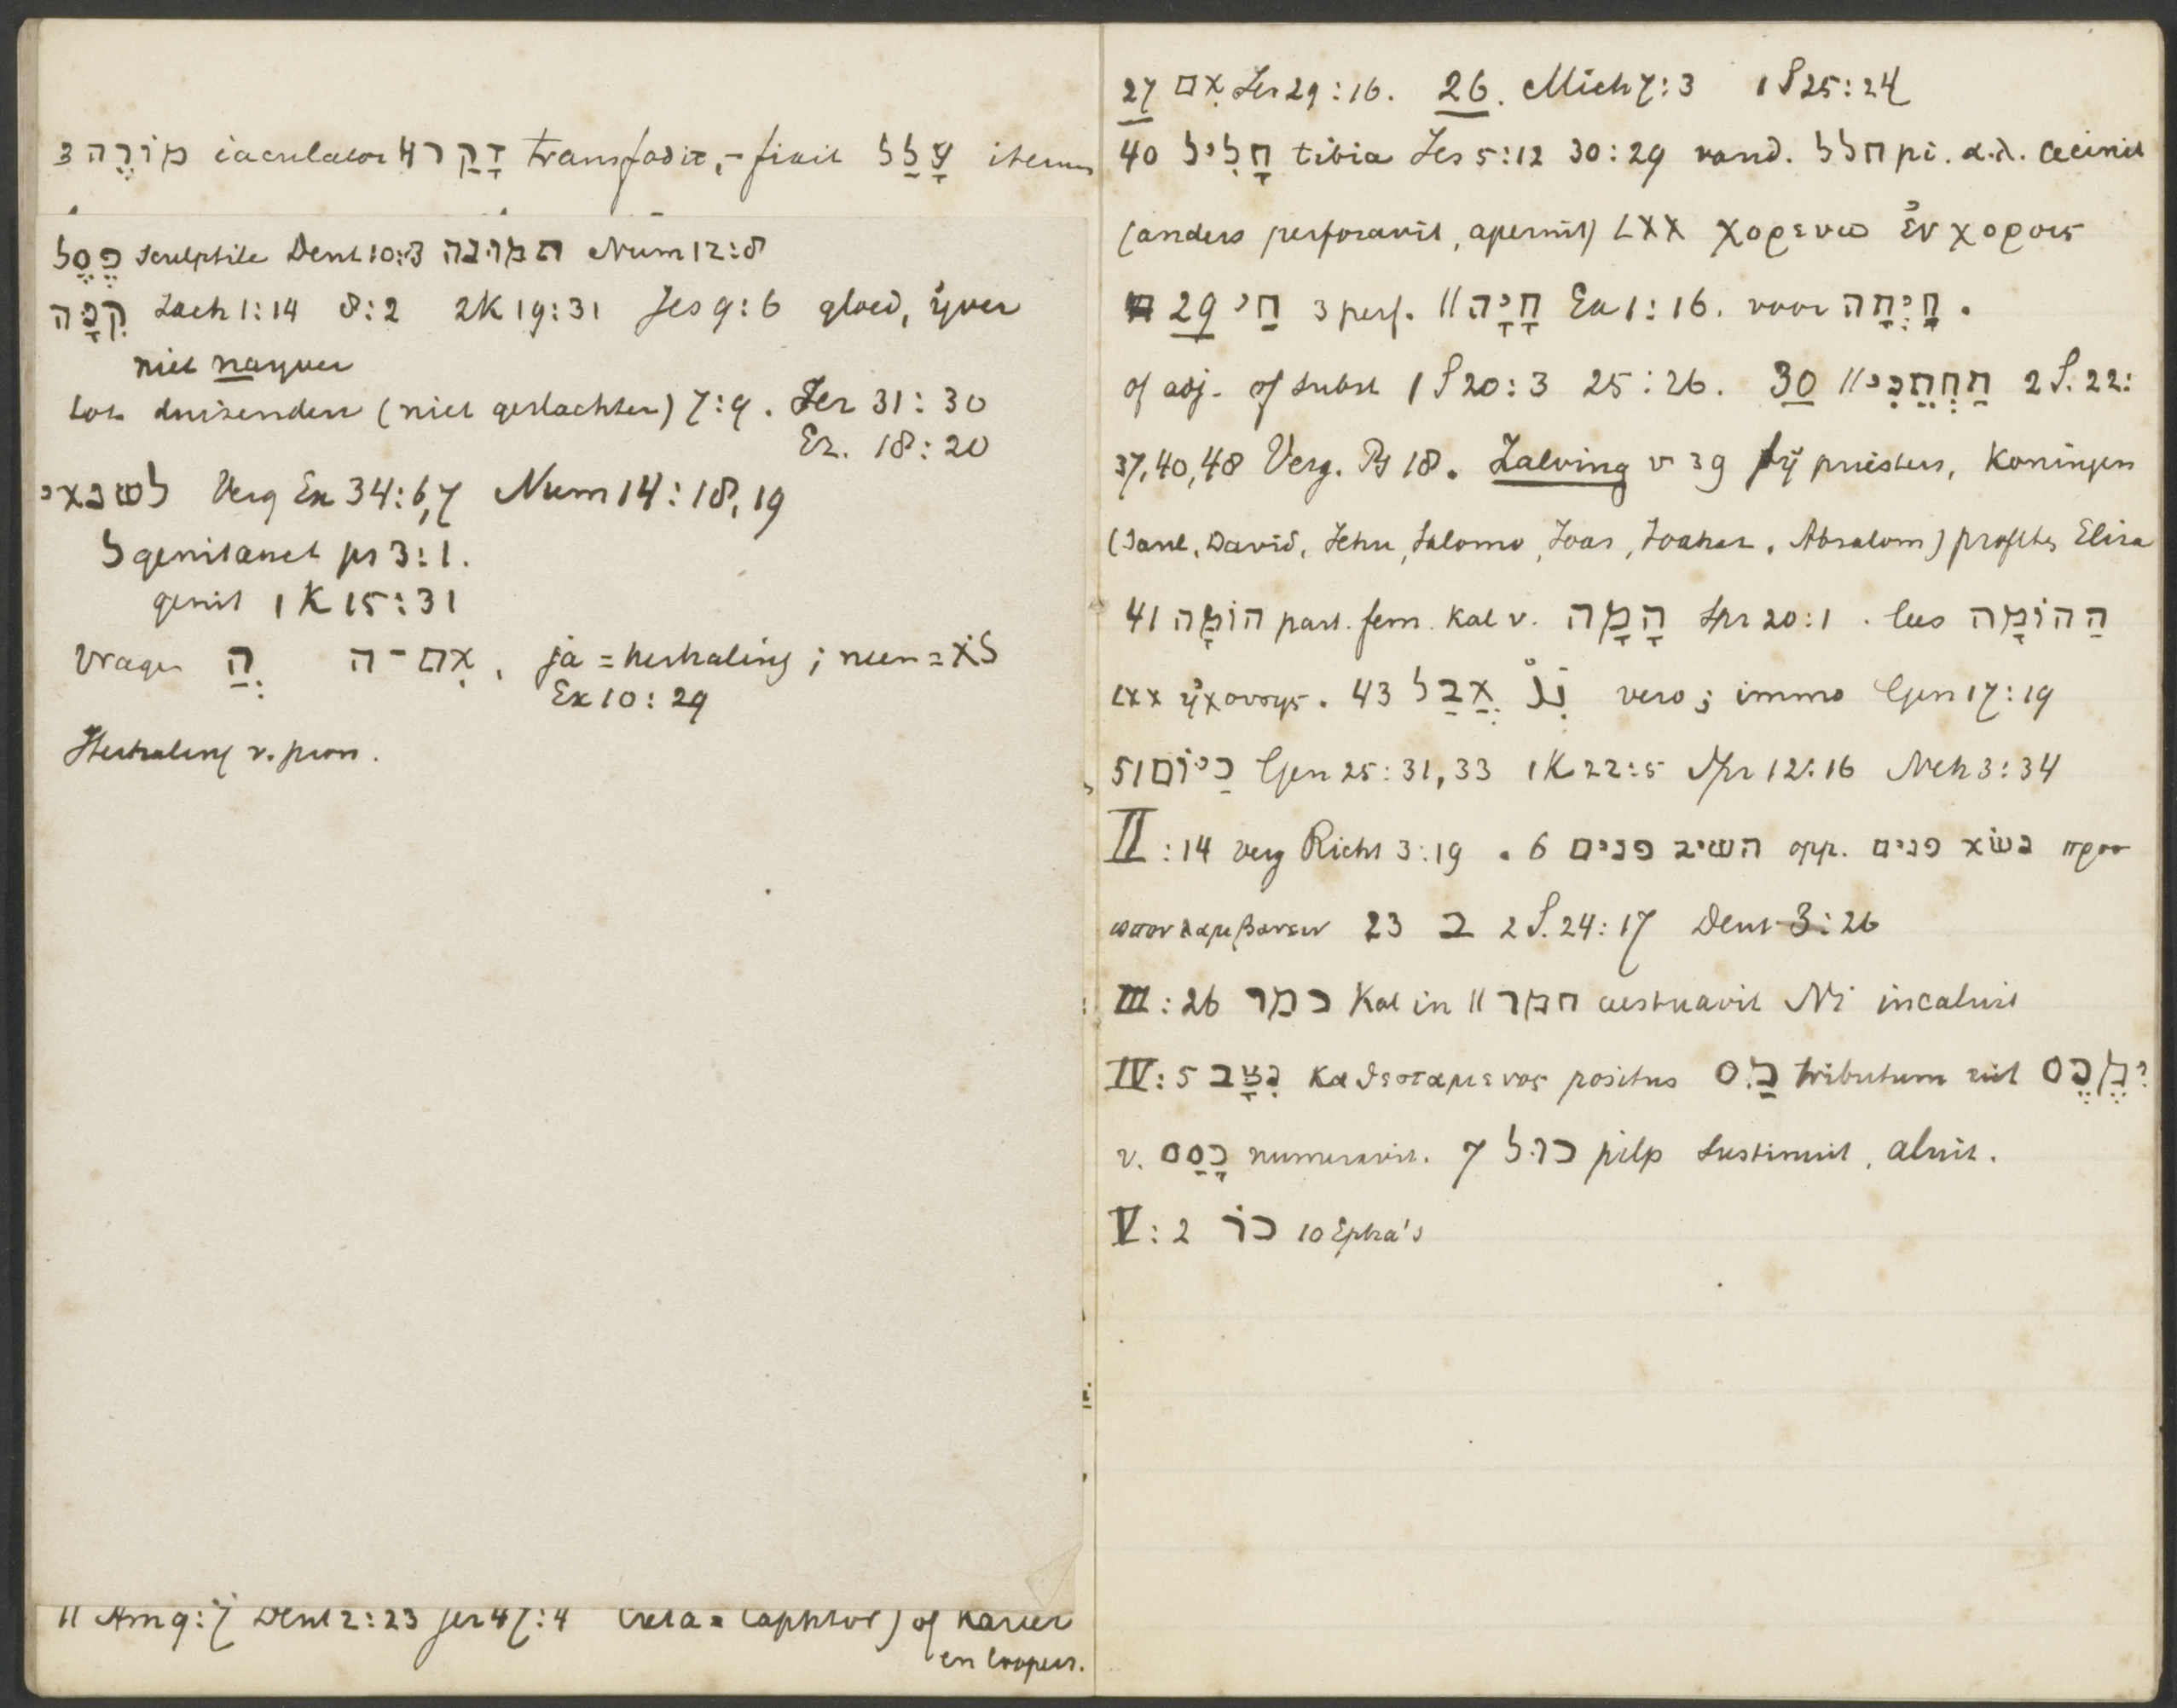 3 מוֹרֶה iaculator 4 דָּקַר transfodit, -fixit עָלַל iterum
פֶּסֶל sculptile Deut 10:3 תמונה Num 12:8
קִנְאָה Zach 1:14 8:2 2K 19:31 Jes 9:6 gloed, ijver
niet naijver
tot duizenden (niet geslachten) 7:9. Jer 31:30
Ez. 18:20
לשנאי Verg Ex 34:6,7 Num 14:18,19
ל genit auct ps 3:1.
genit 1 K 15:31
Vragen הֲ אִם־ה, ja = herhaling; neen = לֹא
Ex 10:29
Herhaling v. pron.
11 Am 9:7 Deut 2:23 Jer 47:4 Creta = Caphtor) of Karier
en loopers.
27 אִם Jer 29:16. 26. Mich 7:3 1 S 25:24
40 חָלִיל tibia Jes 5:12 30:29 vand. חלל pi. α.λ. cecinit
(anders perforavit, aperuit) LXX χορευω ἐν χοροις
29 חַי 3 perf. // חָיָה Ex 1:16. voor
of adj. of subst 1 S 20:3 25:26. 30 // 2 S. 22:
37, 40, 48 Verg. Ps 18. Zalving v 39 bij priesters, Koningen
(Saul, David, Jehu, Salomo, Joas, Joahaz, Absalom) profetes Elisa
41 הוֹמָה part. fem. kal v. הָמָה Spr 20:1. lees הַהוֹמָה
LXX ἠχουσης. 43 אֲבָל vero; immo Gen 17:19
51 כַיּוֹם Gen 25:31,33 1K 22:5 Spr 12:16 Neh 3:34
II:14 verg Richt 3:19. 6 השיב פנים opp. נשוא פנים προσ
ωπον λαμβανειν 23 ב 2 S. 24:17 Deut 3:26
III:26 כמר Kal in // חמר aestuavit Ni incaluit
IV:5 נִצָּב καθεσταμενος positus מַס tributum uit מֶכֶס?
v. כָּסַס numeravit. 7 כול pilp sustinuit, aluit.
V:2 כֹּר 10 Epha's